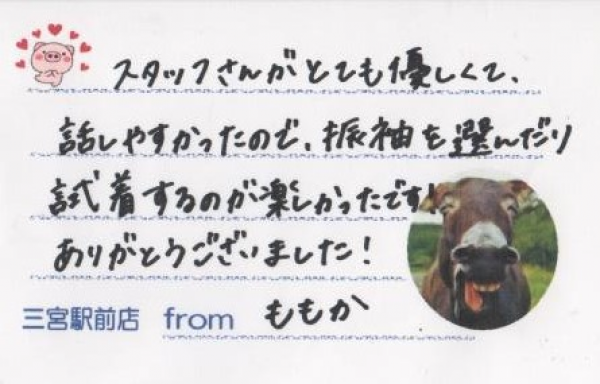 スタッフさんがとても優しくて、
話しやすかったので、振袖を選んだり
試着するのが楽しかったです!
ありがとうございました!
三宮駅前店 from ももか